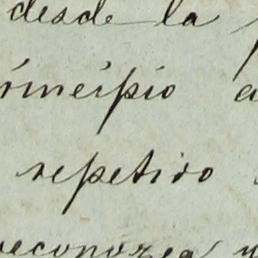 desde la
rincipio a
repetivo
reconozca y